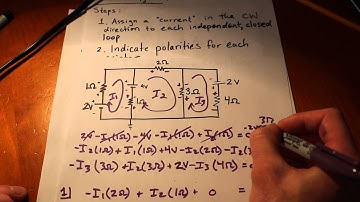 Steps:
1. Assign a "current" in the CW
direction to each independent, closed
loop
2. Indicate polarities for each
2Ω
1Ω I₁ 4V I₂ 3Ω I₃ 2V
2V 1Ω 4Ω
3Ω
-I₂(1Ω) + I₁(1Ω) + 4V - I₂(2Ω) - I₂(3Ω)
-I₃(3Ω) + I₂(3Ω) + 2V - I₃(4Ω) =
1] -I₁(2Ω) + I₂(1Ω) + 0 =